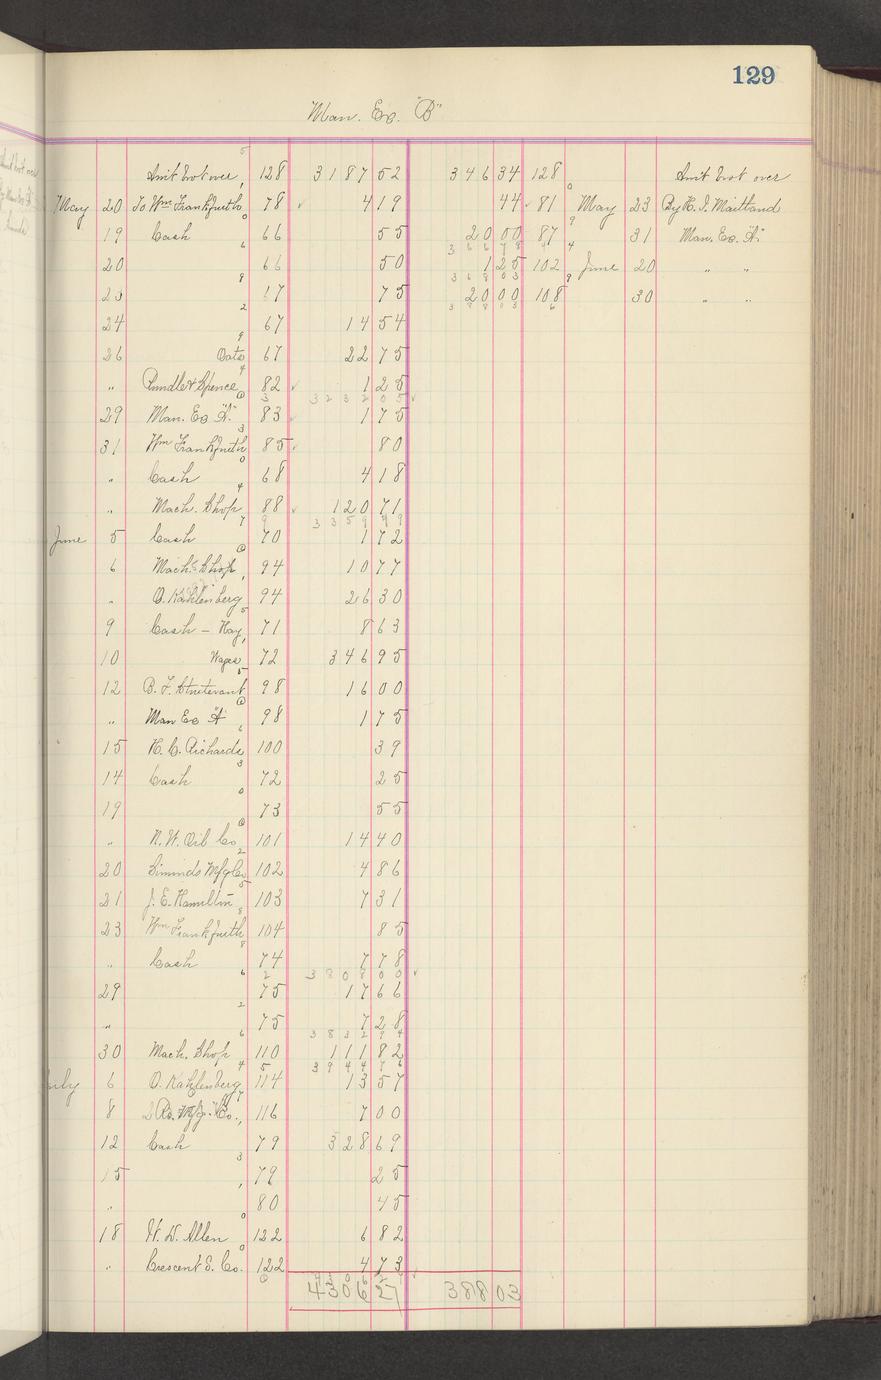 129
Man. Ex. "B"
Amt brot over 128 3187 52 346 34 128 Amt brot over
May 20 To Wm Frankfurth 78 4 19 44 81 May 23 By H. I. Maitland
19 Cash 66 55 20 00 87 31 Man. Ex. "A"
20 66 50 1 25 102 June 20 " "
23 67 75 20 00 108 30 " "
24 67 14 54
26 Oats 67 22 75
" Rundle & Spence 82 1 25
323205
29 Man. Ex "A" 83 1 75
31 Wm Frankfurth 85 80
" Cash 68 4 18
" Mach. Shop 88 120 71
335949
June 5 Cash 70 1 72
6 Mach. Shop 94 10 77
" O. Kahlenberg 94 26 30
9 Cash - Hay 71 8 63
10 Wages 72 346 95
12 B. F. Sturtevant 98 16 00
" Man Ex "A" 98 1 75
15 H. C. Richards 100 39
14 Cash 72 25
19 73 55
" N. W. Oil Co 101 14 40
20 Simonds Mfg Co 102 4 86
21 J. E. Hamilton 103 7 31
23 Wm Frankfurth 104 85
" Cash 74 7 78
380800
29 75 17 66
" 75 7 28
383294
30 Mach. Shop 110 111 82
394476
July 6 O. Kahlenberg 114 13 57
8 Mfg. Co. 116 7 00
12 Cash 79 328 69
15 79 25
" 80 45
18 W. D. Allen 122 6 82
" Crescent S. Co. 122 4 73
4306 27 388 03